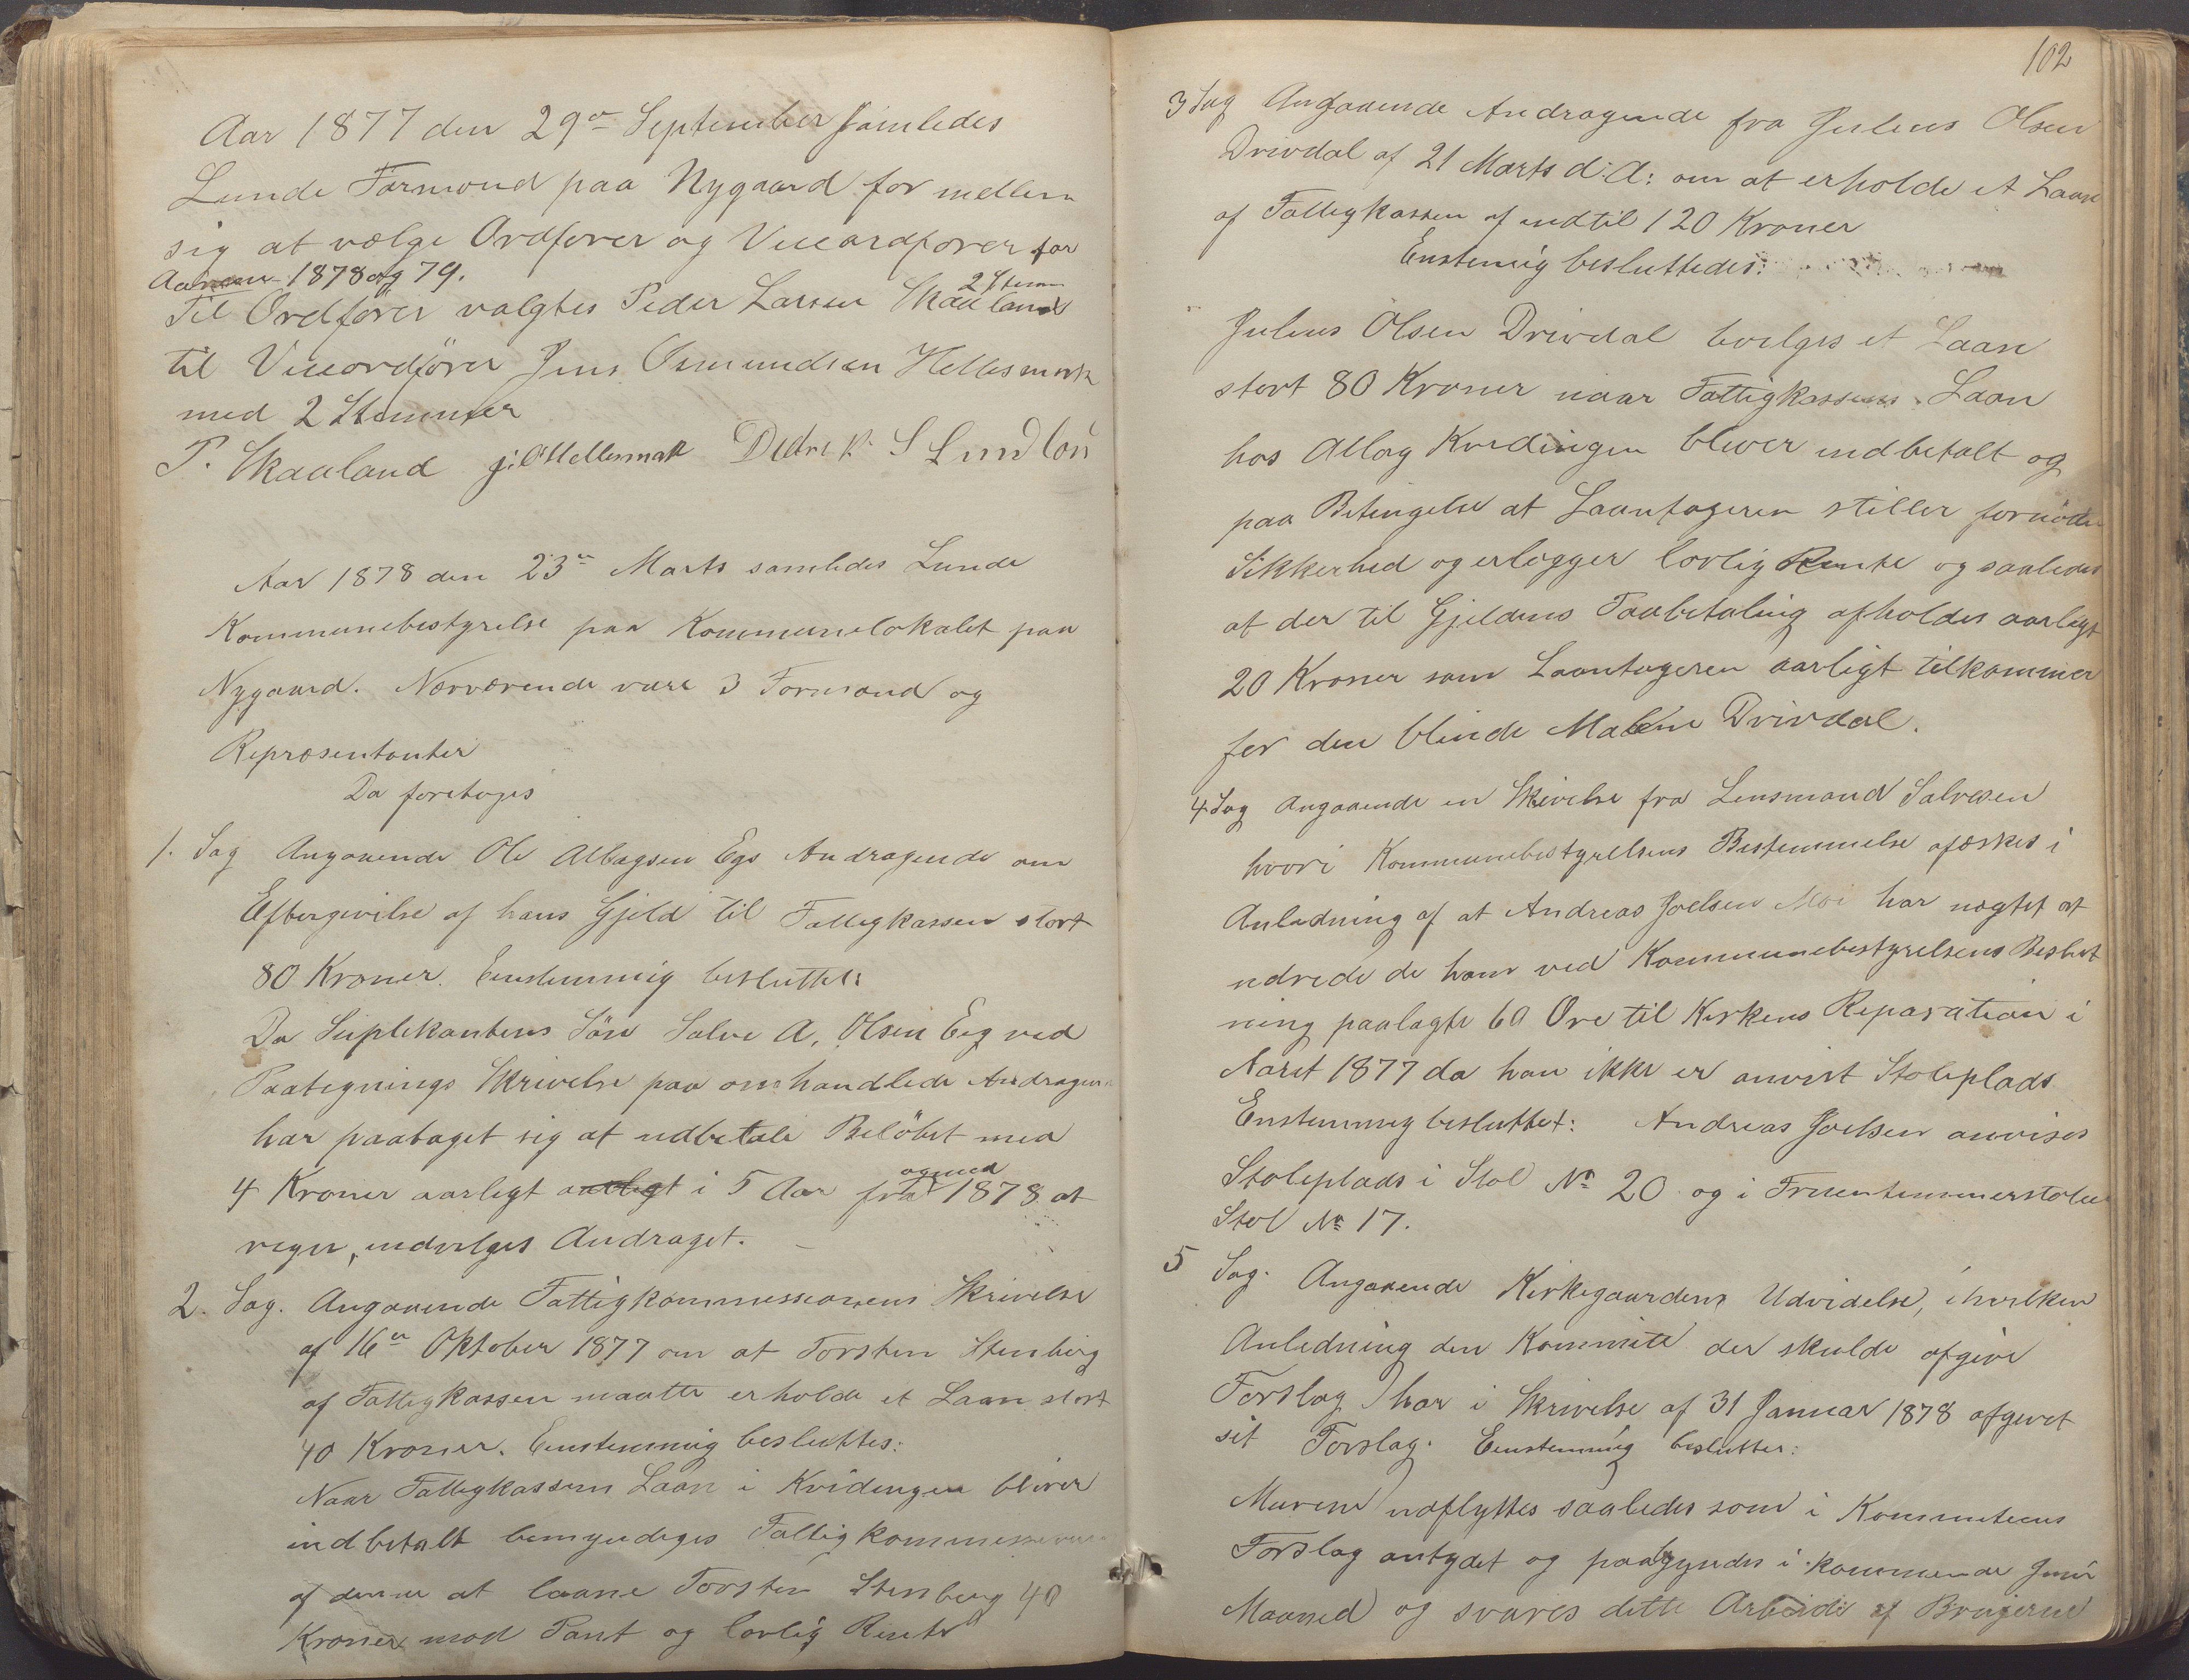 Aar 1877 den 29de September samledes
Lunde Formænd paa Nygaard for mellem
sig at vælge Ordfører og Viceordfører for
Aarene 1878 og 79.
Til Ordfører valgtes Peder Larsen Skaaland 2 Stem
til Viceordfører Jens Osmundsen Hellesmark
med 2 Stemmer
P. Skaaland J. O. Hellesmark
Aar 1878 den 23de Marts samledes Lunde
Kommunebestyrelse paa Kommunelokalet paa
Nygaard. Nærværende vare 3 Formænd og
Repræsentanter
Da foretoges
1. Sag Angaaende Ole Albagsen Egs Andragende om
Eftergivelse af hans Gjeld til Fattigkassen stort
80 Kroner. Eenstemmig besluttet:
Da Suplikantens Søn Salve A. Olsen Eeg ved
Paategnings Skrivelse paa omhandlede Andragen
har paataget sig at udbetale Beløbet med
4 Kroner aarligt aarligt i 5 Aar fra og med 1878 at
regne, indvilges Andraget.
2. Sag. Angaaende Fattigkommissionens Skrivelse
af 16de Oktober 1877 om at Torsten Stenberg
af Fattigkassen maatte erholde et Laan stort
40 Kroner. Eenstemmig besluttes:
Naar Fattigkassens Laan i Kvidingen bliver
indbetalt bemyndiges Fattigkommissionen
af denne at laane Torsten Stenberg 40
Kroner mod Pant og lovlig Rente
102
3 Sag Angaaende Andragende fra Julius Olsen
Drivdal af 21 Marts d: A: om at erholde et Laan
af Fattigkassen af indtil 120 Kroner
Enstemig besluttedes:
Julius Olsen Drivdal bevilges et Laan
stort 80 Kroner naar Fattigkassens Laan
hos Atlag Kvidingen bliver indbetalt og
paa Betingelse at Laantageren stiller fornøden
Sikkerhed og erlægger lovlig Rente og saaledes
at der til Gjeldens Faabetaling afholdes aarligt
20 Kroner som Laantageren aarligt tilkommer
for den blinde Malene Drivdal.
4 Sag angaaende en Skrivelse fra Lensmand Salvesen
hvori Kommunebestyrelsens Bestemmelse afæskes i
Anledning af at Andreas Joelsen Moi har nægtet at
udrede de ham ved Kommunebestyrelsens Beslut
ning paalagte 60 Øre til Kirkens Reparation i
Aaret 1877 da han ikke er anvist Stoleplads
Enstemmig besluttet: Andreas Joelsen anvises
Stoleplads i Stol No 20 og i Fruentimmerstolene
Stol No 17.
5 Sag. Angaaende Kirkegaardens Udvidelse, i hvilken
Anledning den Kommite der skulde afgive
Forslag har i Skrivelse af 31 Januar 1878 afgivet
sit Forslag. Eenstemmig besluttes:
Murene udflyttes saaledes som i Kommiteens
Forslag antydet og paabegyndes i kommende Juni
Maaned og svares dette Arbeide af Brugerne